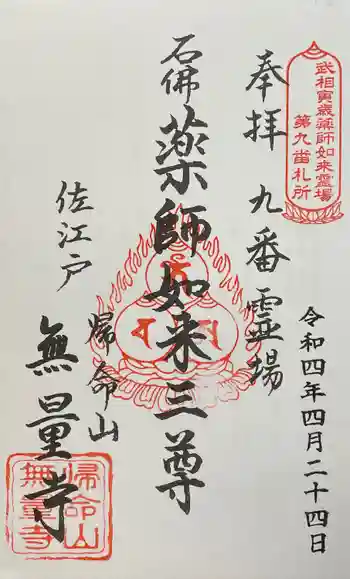 武相寅歳薬師如来霊場
第九番札所
奉拝 九番霊場
令和四年四月二十四日
石佛 薬師如来三尊
佐江戸
帰命山
無量寺
帰命山
無量寺